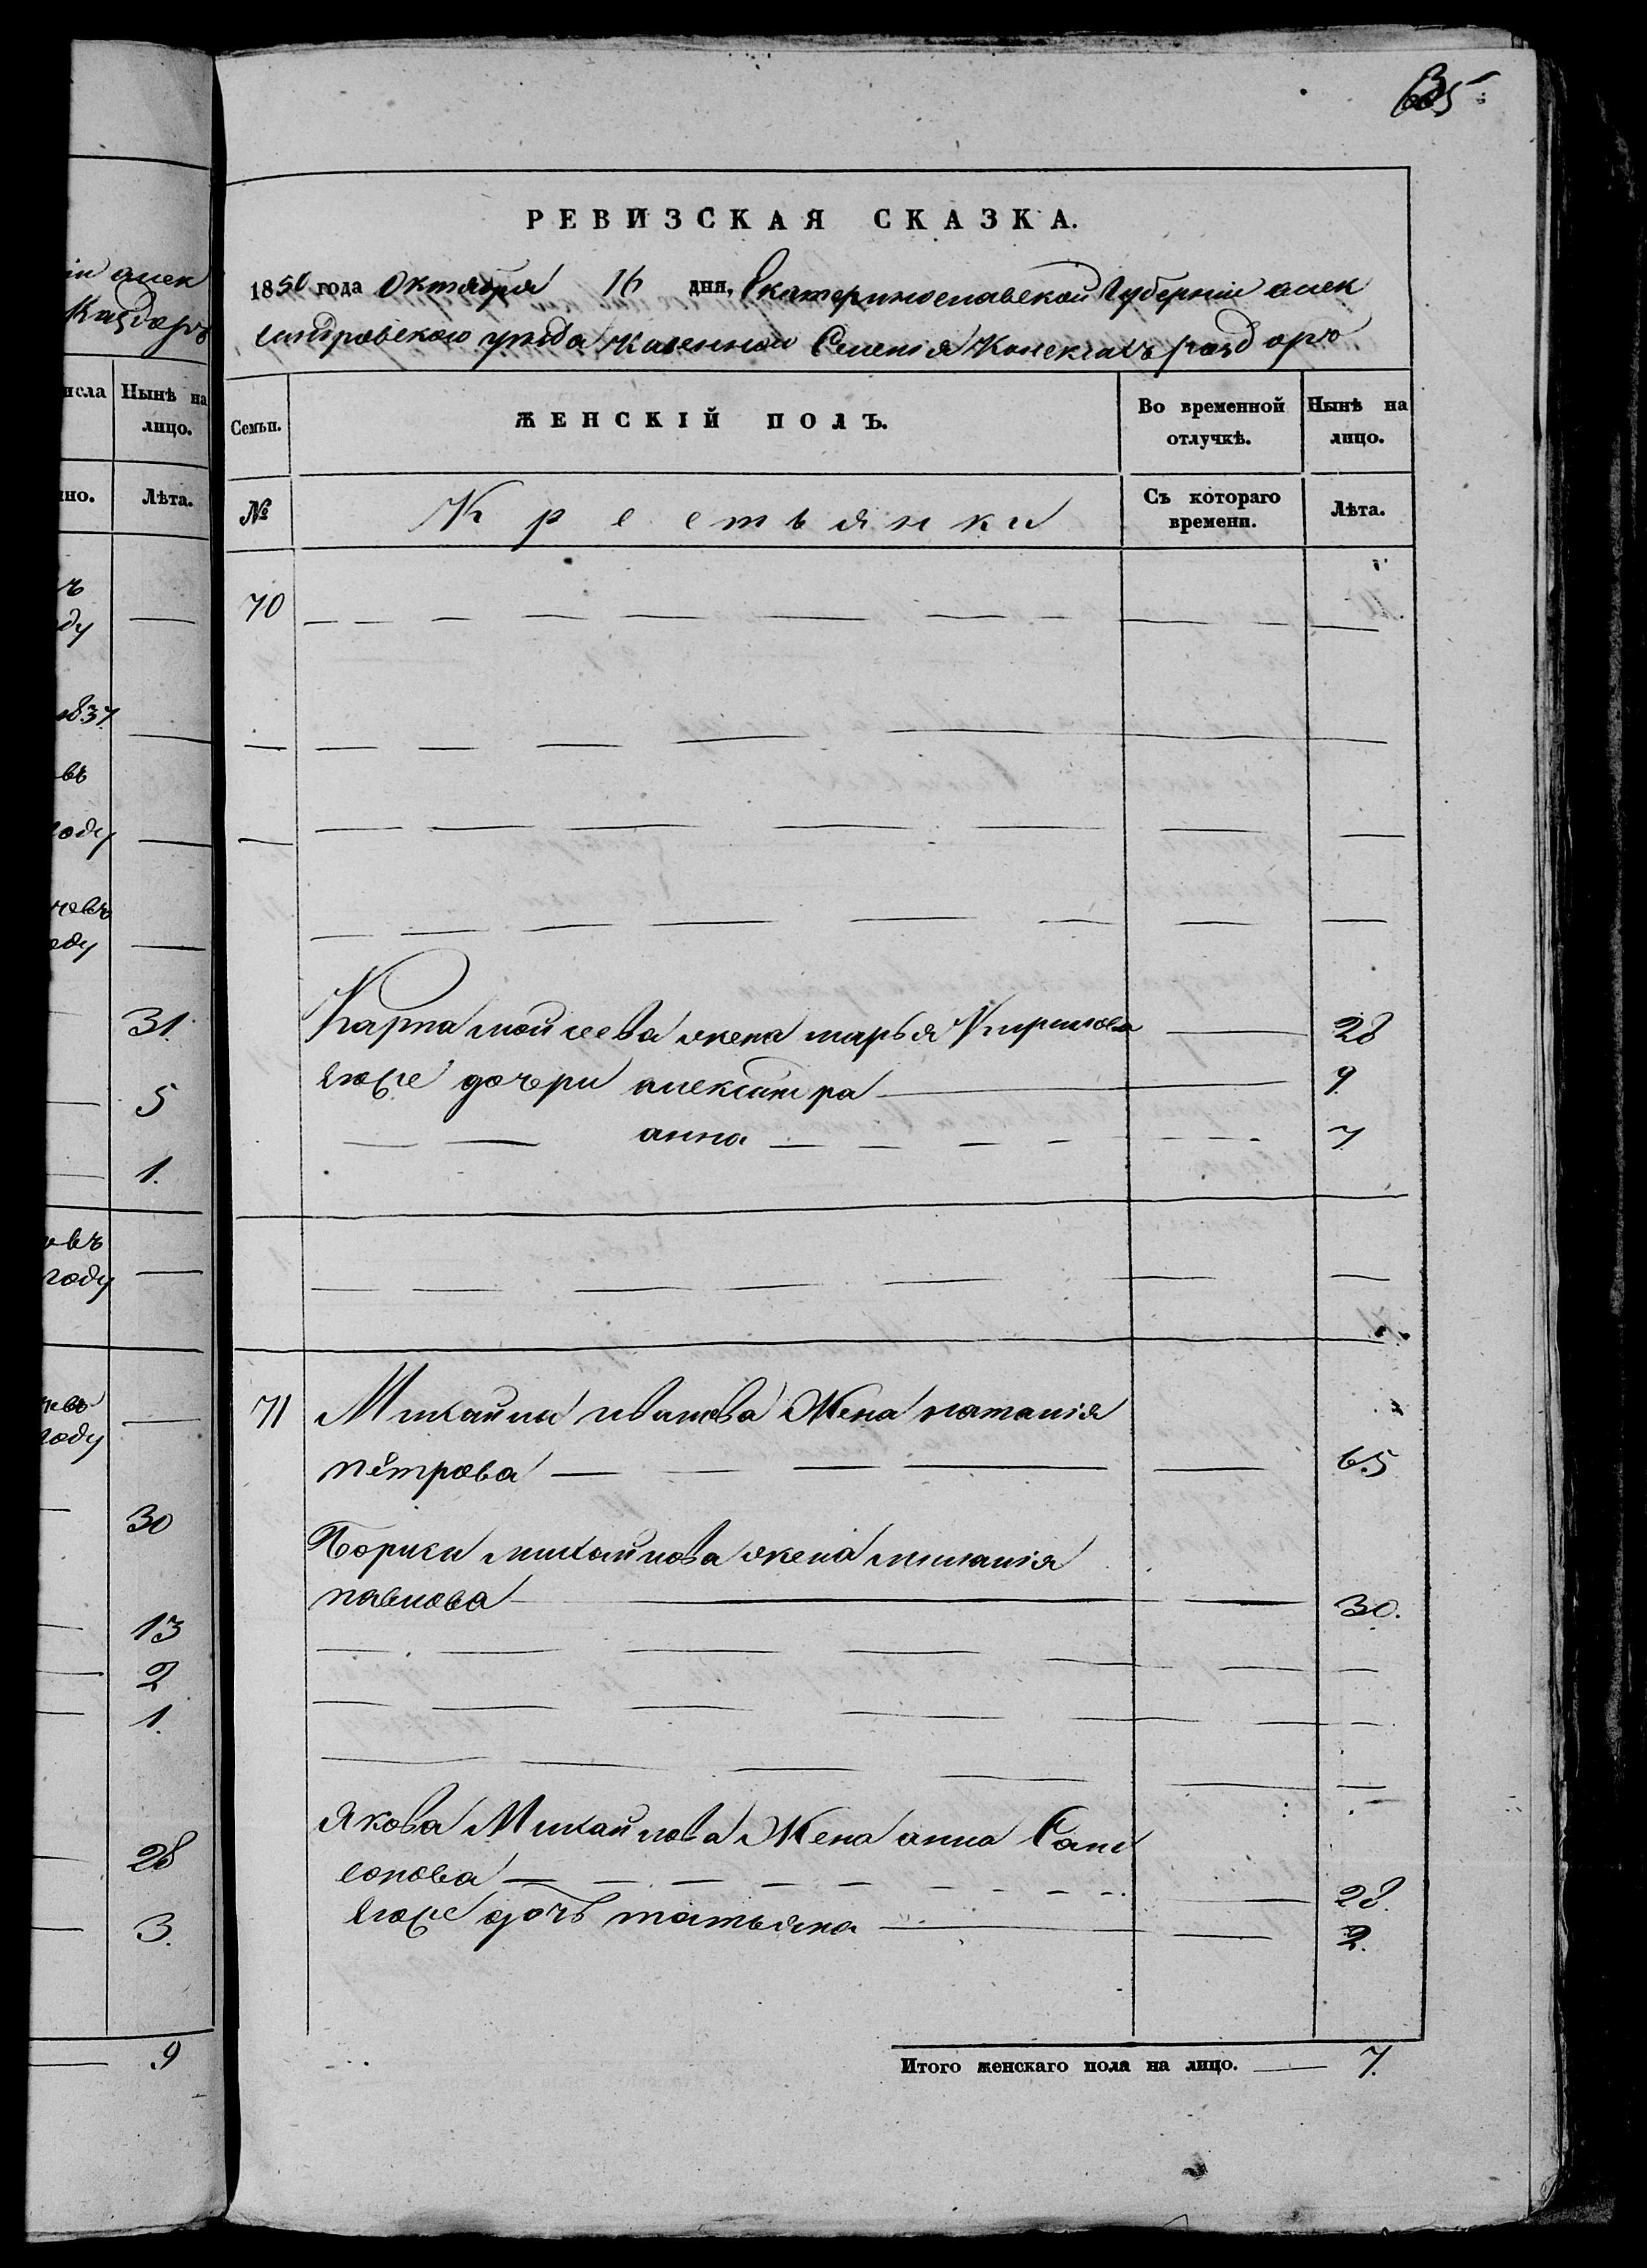 РЕВИЗСКАЯ СКАЗКА.
1850 года Октября 16 дня, Екатеринославской Губернии алек
сандровского уезда Казенного Селения Конских раздоръ
исла Нынѣ на лицо.
но. Лѣта.
Семьи. ЖЕНСКІЙ ПОЛЪ. Во временной отлучкѣ. Нынѣ на лицо.
№ Крестьянки Съ котораго времени. Лѣта.
70
Карпа мойсеева жена марья Кирилова 28
Егоже дочери александра 9
анна 7
71 Михайла иванова Жена наталия
петрова 65
Бориса михайлова жена мелания
павлова 30.
Якова Михайлова Жена анна Сам
сонова 28.
Егоже дочь татьяна 2.
Итого женскаго пола на лицо. 7.
ін алек
Раздоръ
ду
1837
въ
году
оду
31.
5
1.
овъ
году
году
30
13
2
1.
28
3.
9